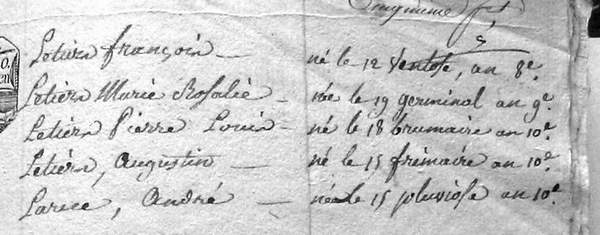 Lotiers françois — né le 12 Ventose, an 8e.
Letiers Marie Rosalie — née le 19 germinal an 9e.
Letiers Pierre Louis — né le 18 brumaire an 10e.
Letiers, Augustin — né le 15 frémaire an 10e.
Larice, André — né le 15 pluviose an 10e.